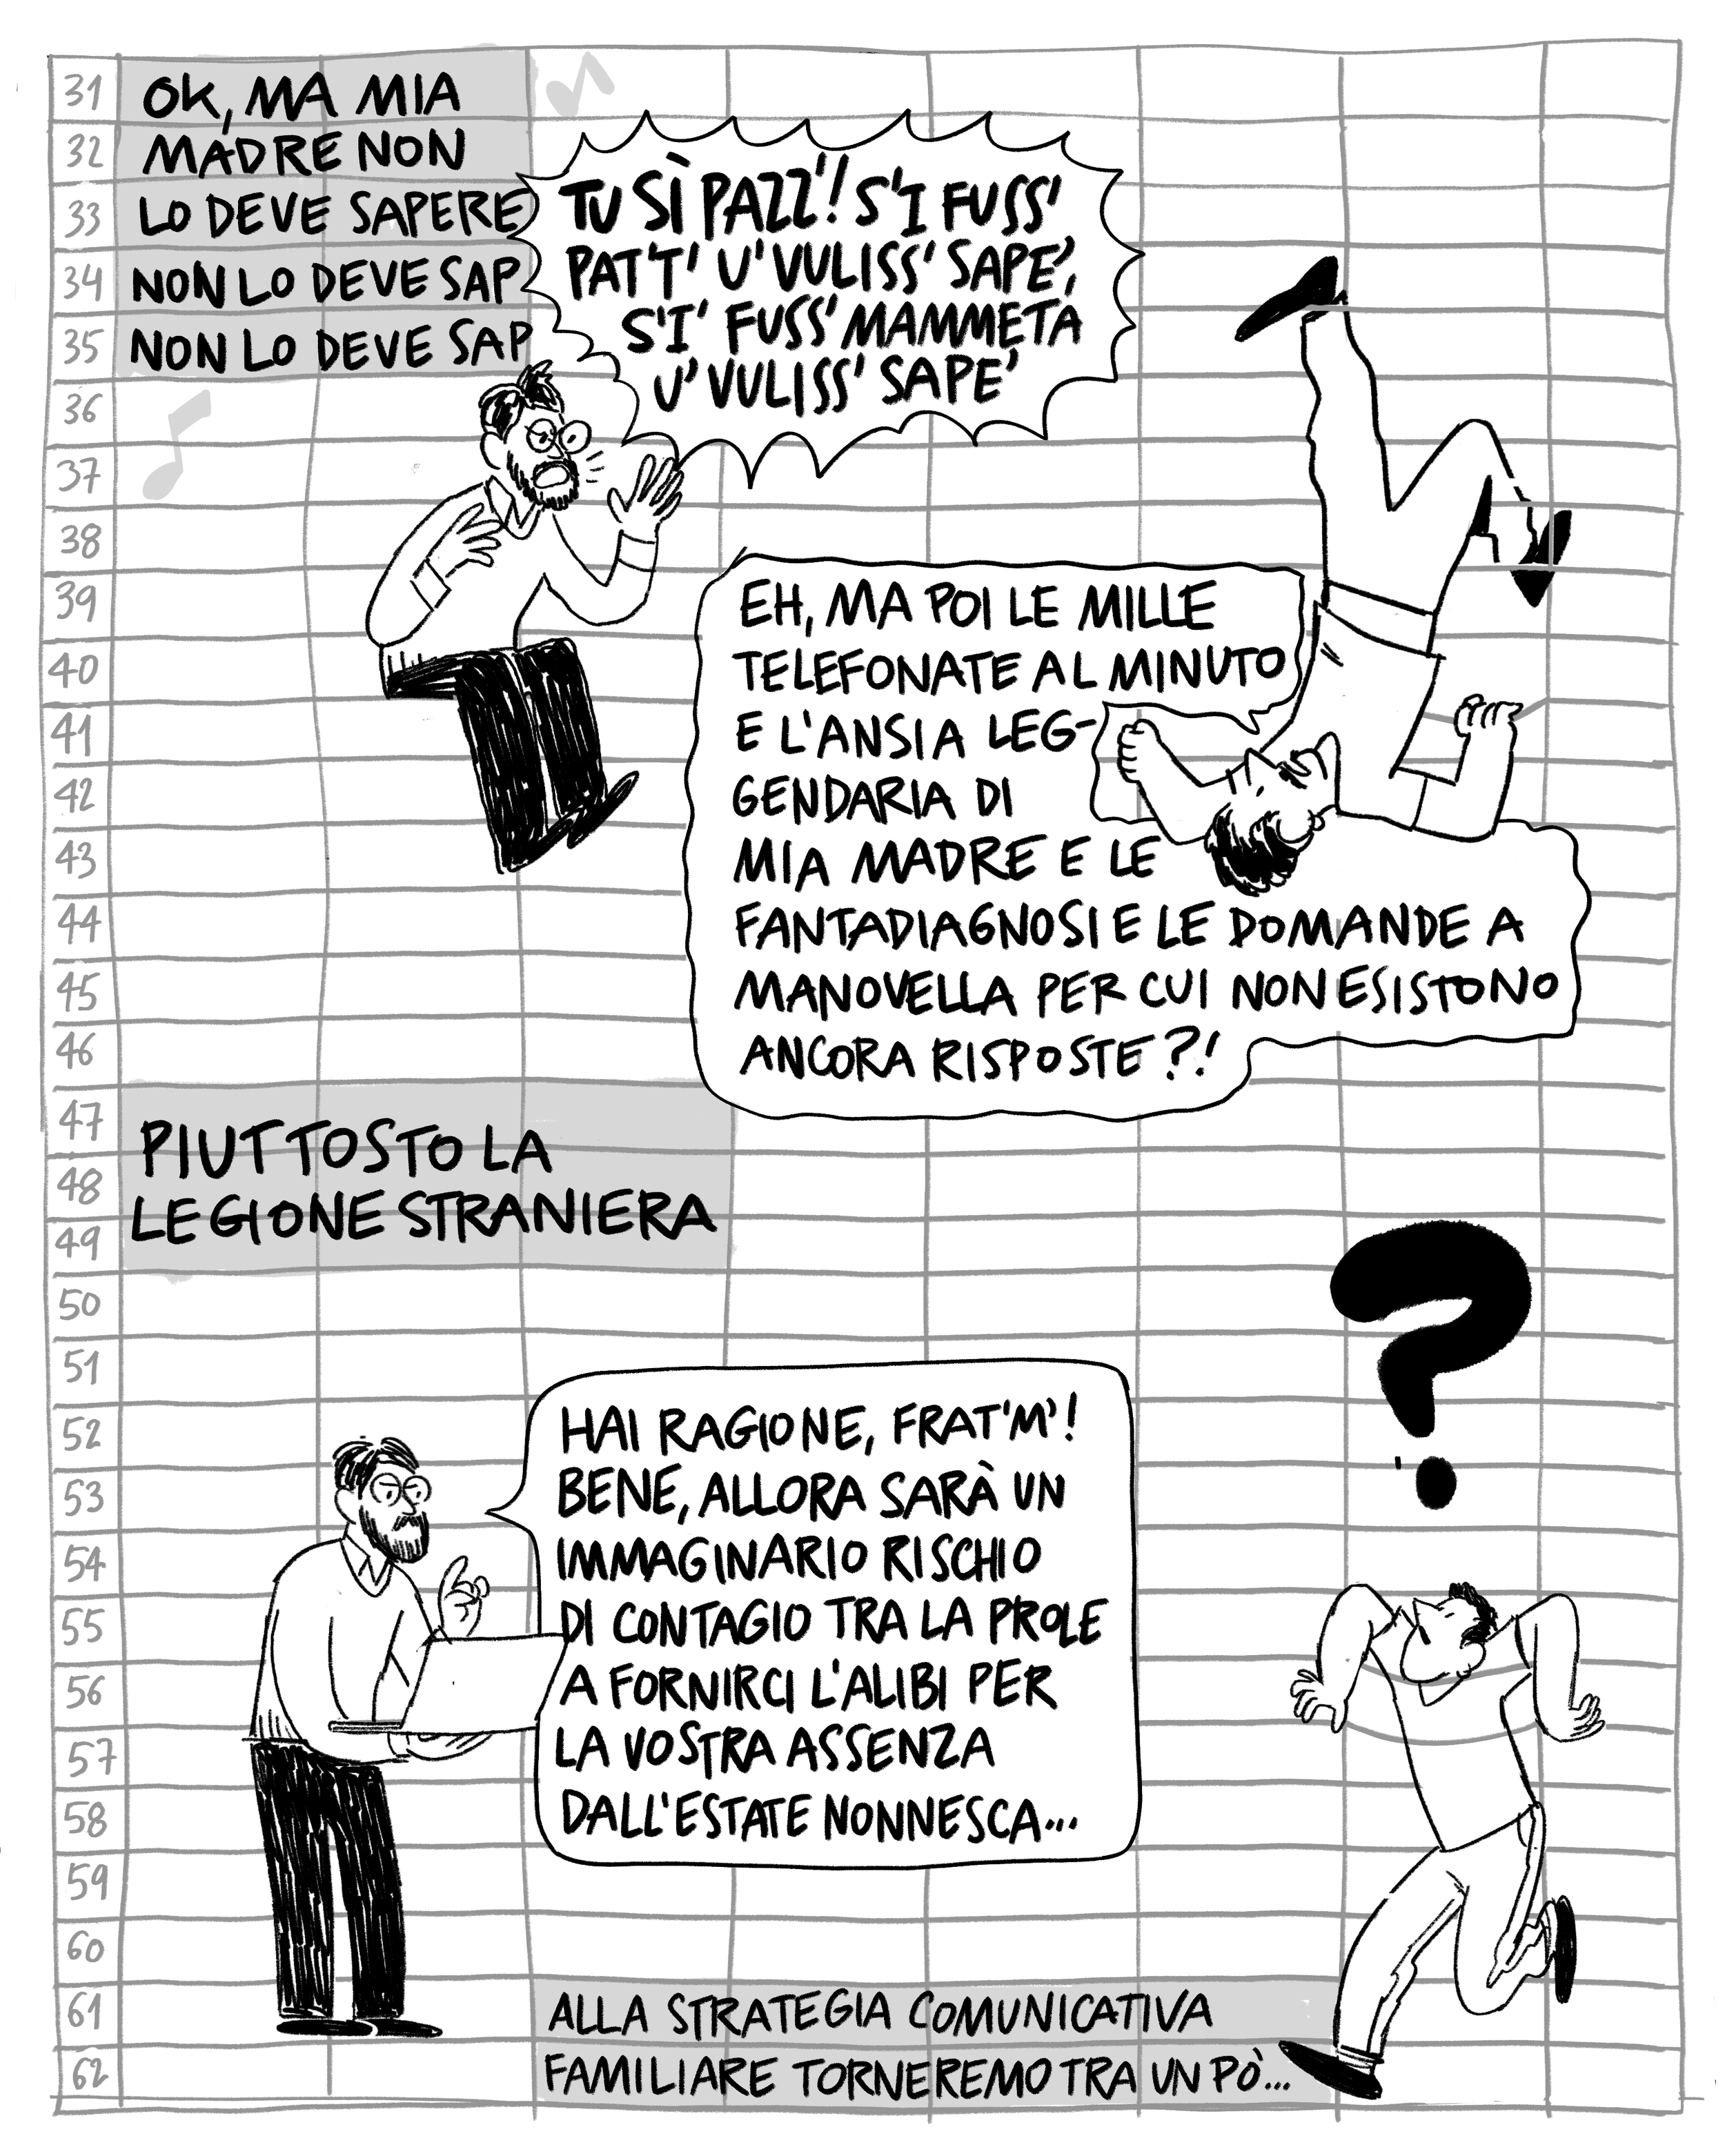 31
OK, MA MIA
32
MADRE NON
33
LO DEVE SAPERE
34
NON LO DEVE SAP
35
NON LO DEVE SAP
TU SÌ PAZZ'! S'I FUSS'
PAT'T' U' VULISS' SAPE',
S'I' FUSS' MAMMETA
U' VULISS' SAPE'
36
37
38
39
40
41
42
43
44
45
46
EH, MA POI LE MILLE
TELEFONATE AL MINUTO
E L'ANSIA LEG-
GENDARIA DI
MIA MADRE E LE
FANTADIAGNOSI E LE DOMANDE A
MANOVELLA PER CUI NON ESISTONO
ANCORA RISPOSTE?!
47
PIUTTOSTO LA
48
LEGIONE STRANIERA
49
50
51
?
52
53
54
55
56
57
58
59
60
HAI RAGIONE, FRAT'M'!
BENE, ALLORA SARÀ UN
IMMAGINARIO RISCHIO
DI CONTAGIO TRA LA PROLE
A FORNIRCI L'ALIBI PER
LA VOSTRA ASSENZA
DALL'ESTATE NONNESCA...
61
ALLA STRATEGIA COMUNICATIVA
62
FAMILIARE TORNEREMO TRA UN PÒ...